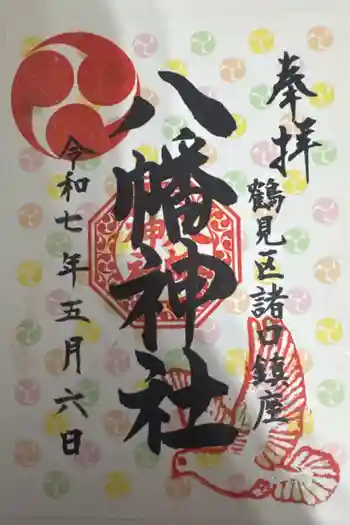 奉拝
鶴見区諸口鎮座
八幡神社
令和七年五月六日